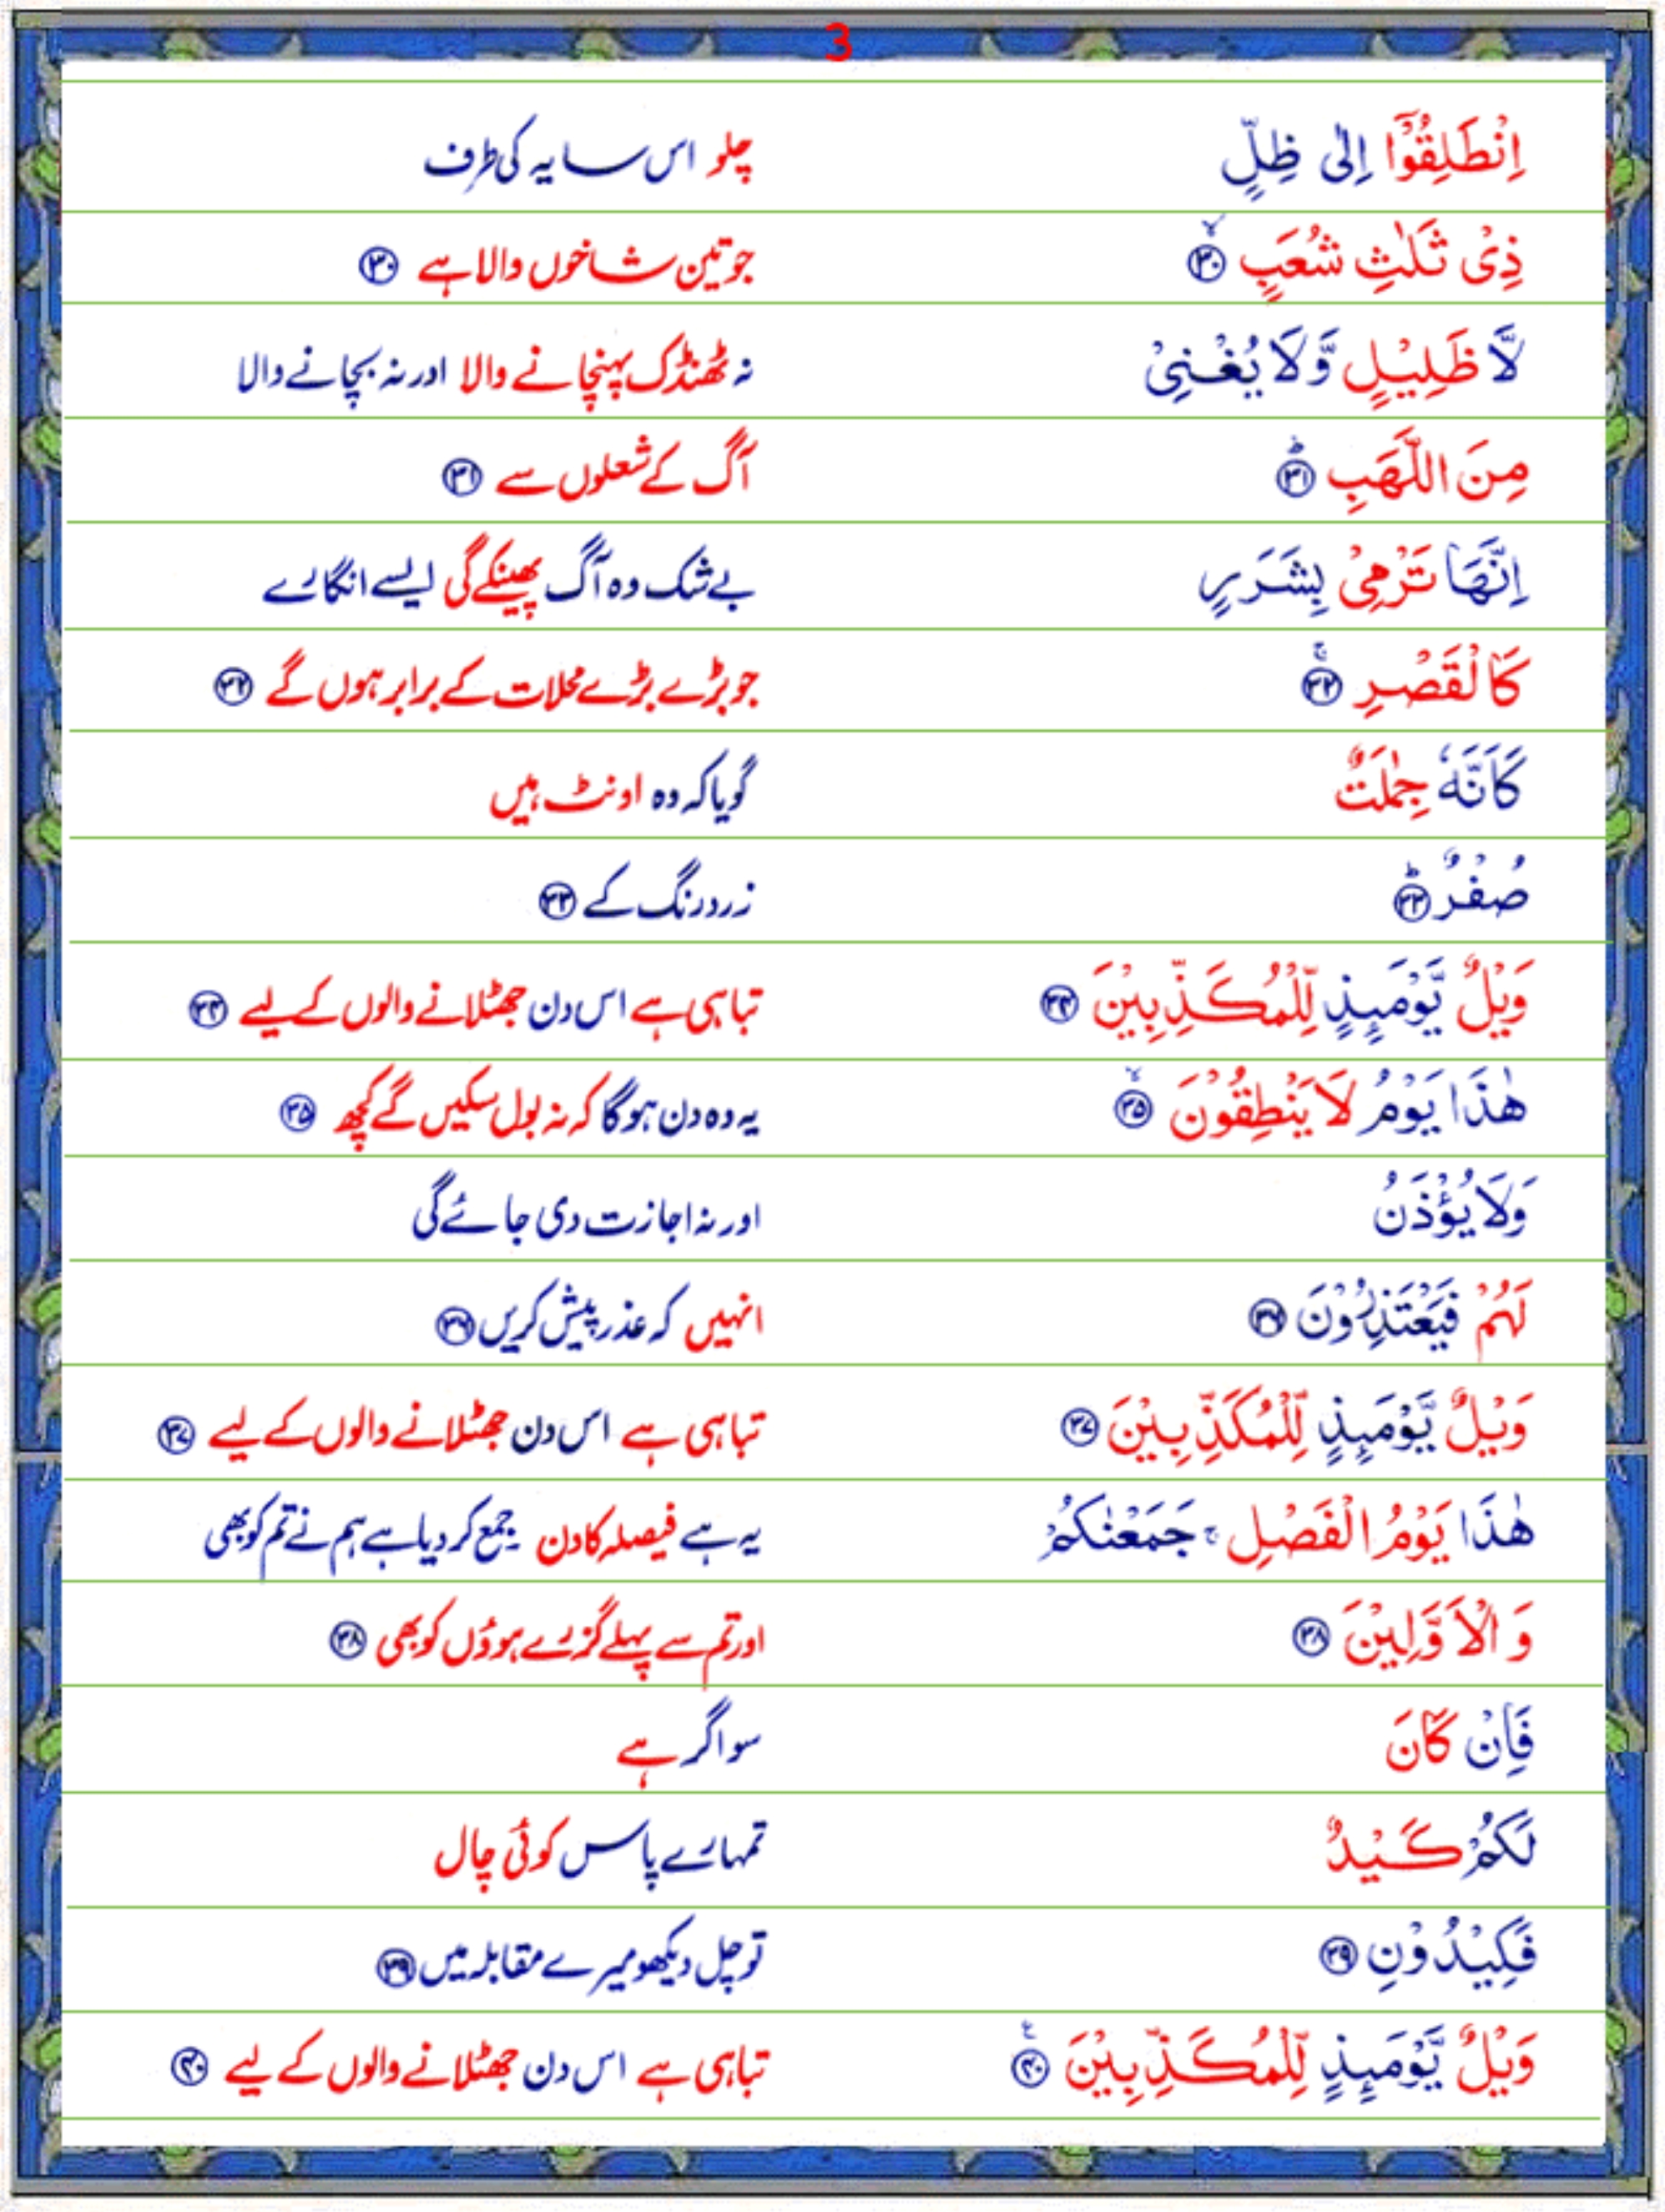 3
اِنْطَلِقُوْٓا اِلٰى ظِلٍّ چلو اس سایہ کی طرف
ذِىْ ثَلٰثِ شُعَبٍ ۙ‏ ﴿۳۰﴾ جو تین شاخوں والا ہے ﴿۳۰﴾
لَّا ظَلِيْلٍ وَّلَا يُغْنِىْ نہ ٹھنڈک پہنچانے والا اور نہ بچانے والا
مِنَ اللَّهَبِؕ‏ ﴿۳۱﴾ آگ کے شعلوں سے ﴿۳۱﴾
اِنَّهَا تَرْمِىْ بِشَرَرٍ بے شک وہ آگ پھینکے گی ایسے انگارے
كَالْقَصْرِۚ‏ ﴿۳۲﴾ جو بڑے بڑے محلات کے برابر ہوں گے ﴿۳۲﴾
كَاَنَّهٗ جِمٰلَتٌ گویا کہ وہ اونٹ ہیں
صُفْرٌؕ‏ ﴿۳۳﴾ زرد رنگ کے ﴿۳۳﴾
وَيْلٌ يَّوْمَٮِٕذٍ لِّلْمُكَذِّبِيْنَ‏ ﴿۳۴﴾ تباہی ہے اس دن جھٹلانے والوں کے لیے ﴿۳۴﴾
هٰذَا يَوْمُ لَا يَنْطِقُوْنَۙ‏ ﴿۳۵﴾ یہ وہ دن ہوگا کہ نہ بول سکیں گے کچھ ﴿۳۵﴾
وَلَا يُؤْذَنُ اور نہ اجازت دی جائے گی
لَهُمْ فَيَعْتَذِرُوْنَ‏ ﴿۳۶﴾ انہیں کہ عذر پیش کریں ﴿۳۶﴾
وَيْلٌ يَّوْمَٮِٕذٍ لِّلْمُكَذِّبِيْنَ‏ ﴿۳۷﴾ تباہی ہے اس دن جھٹلانے والوں کے لیے ﴿۳۷﴾
هٰذَا يَوْمُ الْفَصْلِۚ جَمَعْنٰكُمْ یہ ہے فیصلہ کا دن جمع کر دیا ہے ہم نے تم کو بھی
وَالْاَوَّلِيْنَ‏ ﴿۳۸﴾ اور تم سے پہلے گزرے ہوؤں کو بھی ﴿۳۸﴾
فَاِنْ كَانَ سو اگر ہے
لَكُمْ كَيْدٌ تمہارے پاس کوئی چال
فَكِيْدُوْنِ‏ ﴿۳۹﴾ تو چل دیکھو میرے مقابلہ میں ﴿۳۹﴾
وَيْلٌ يَّوْمَٮِٕذٍ لِّلْمُكَذِّبِيْنَ‏ۧ ﴿۴۰﴾ تباہی ہے اس دن جھٹلانے والوں کے لیے ﴿۴۰﴾